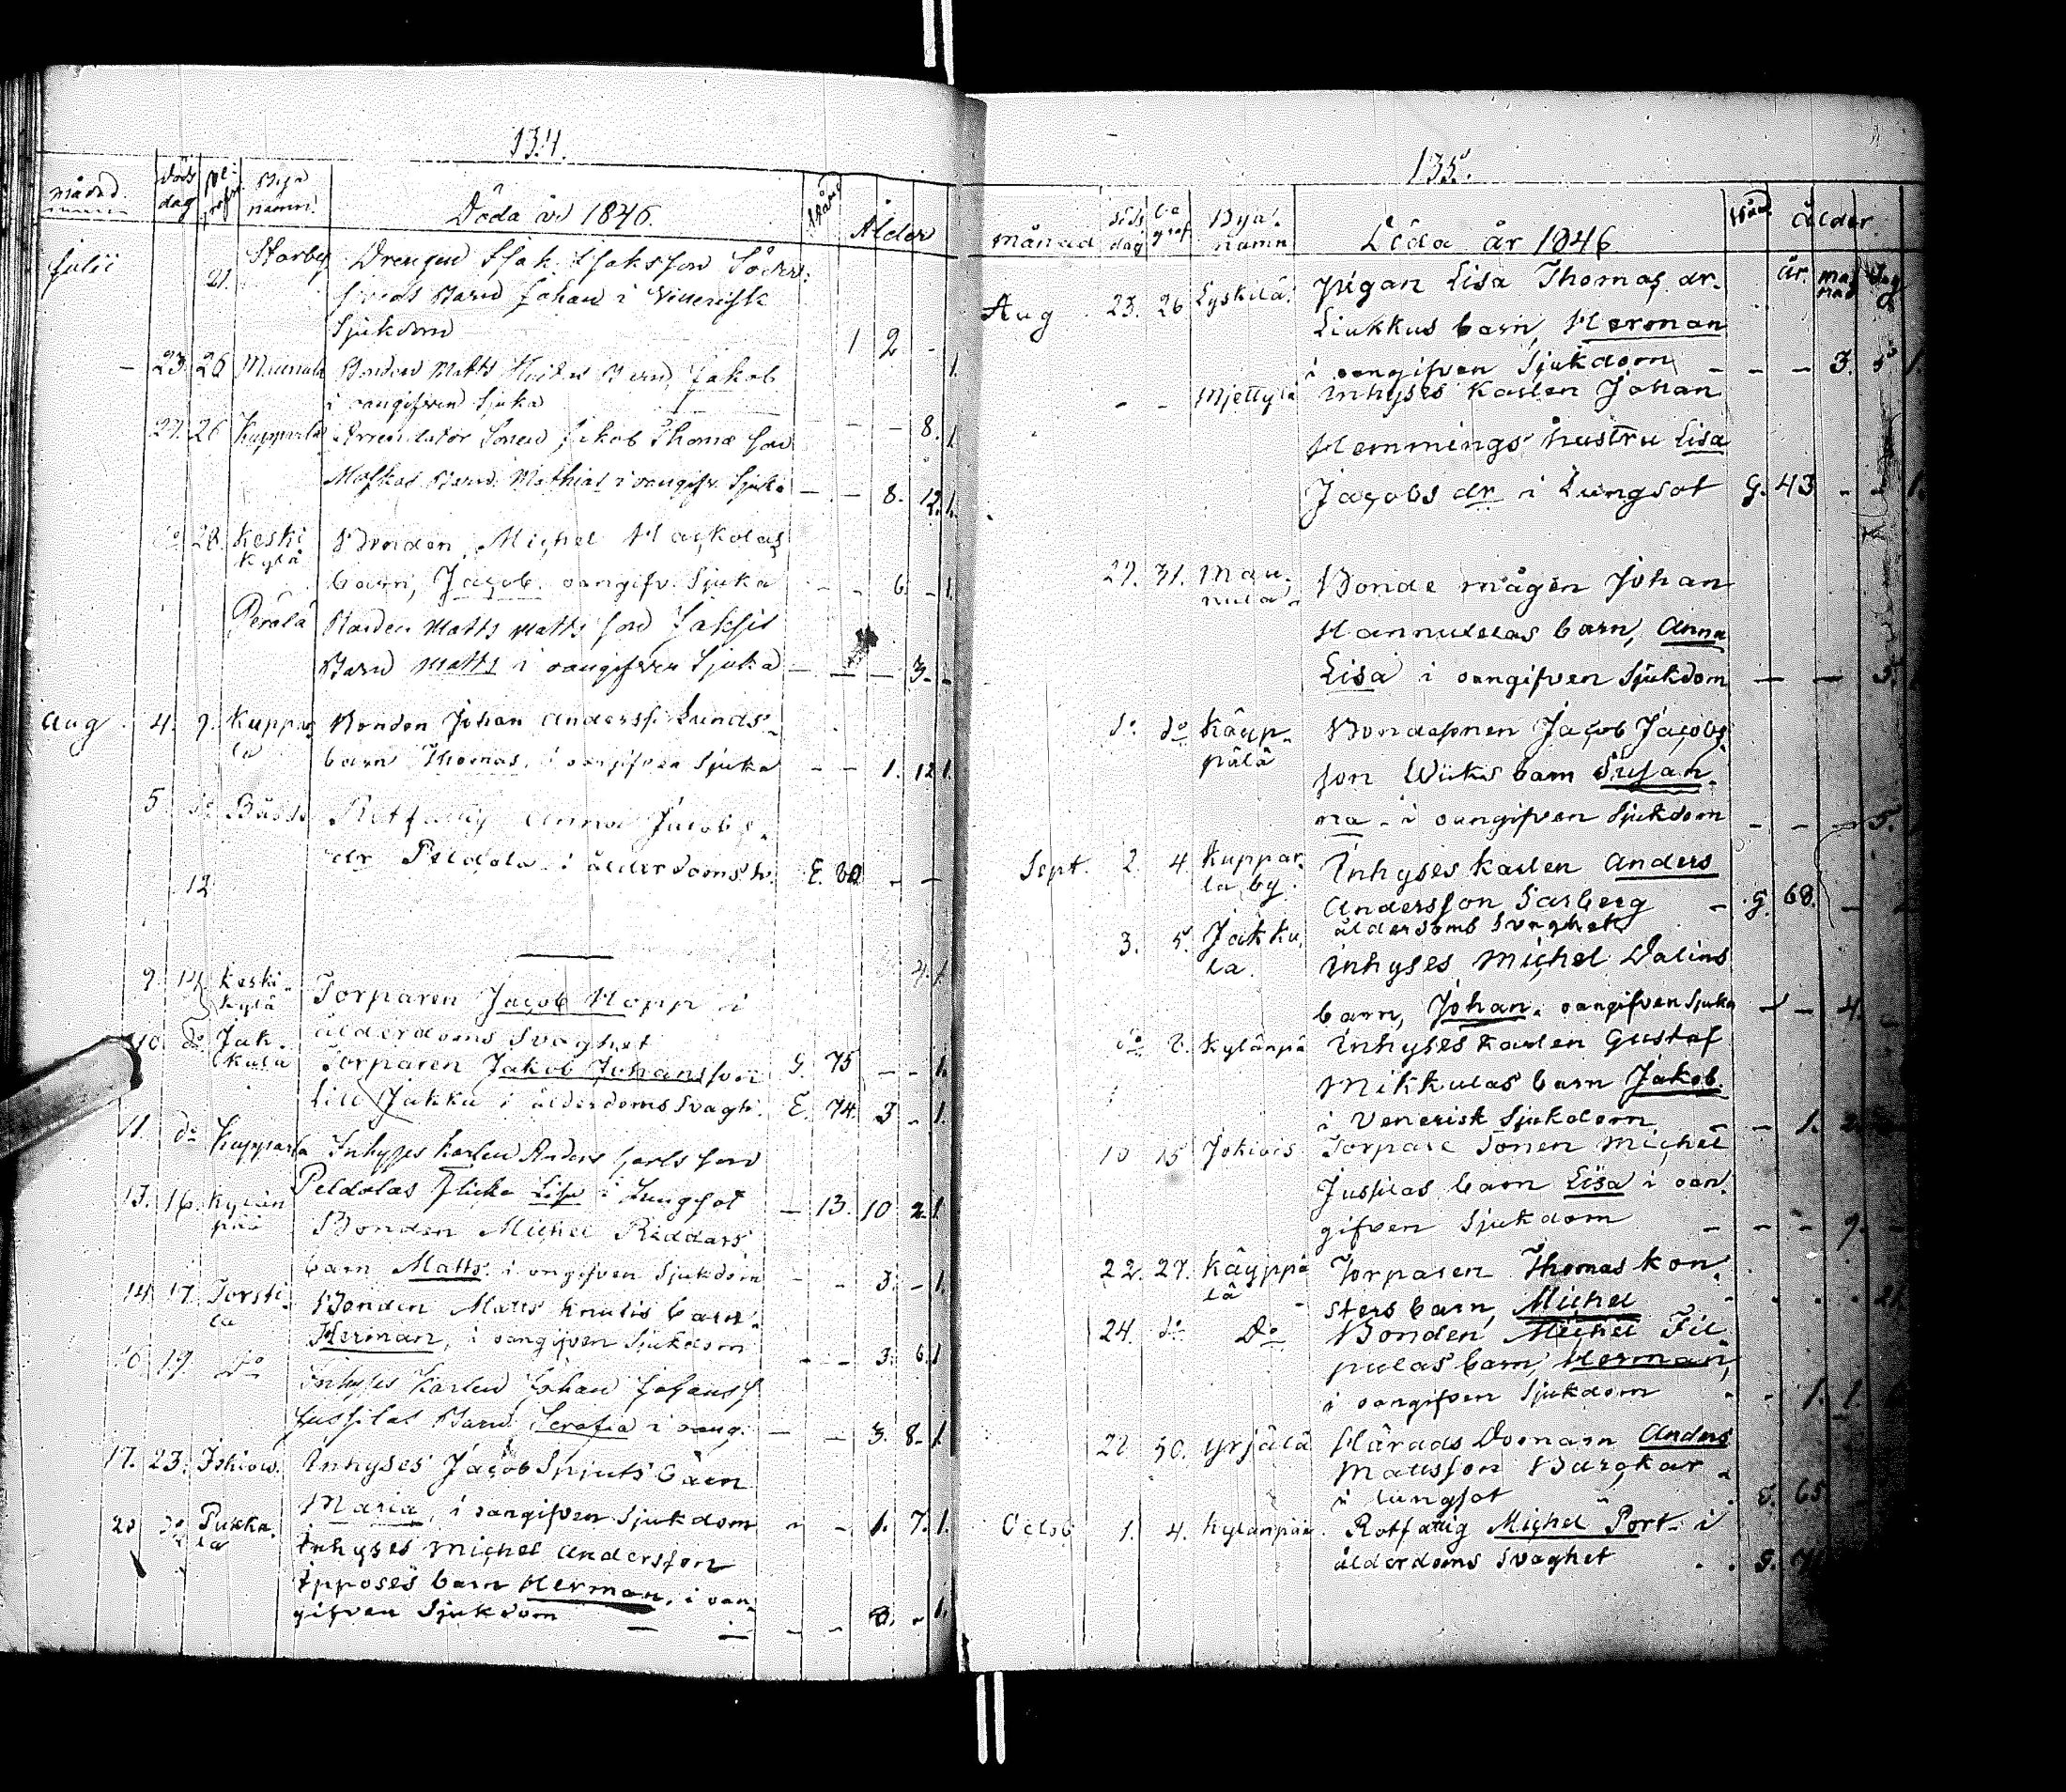 134.
månad döds dag be- graf. Bya namn. Döda år 1846. Stånd Ålder
Julii 21. Storby Drengen Isak Isakssons Söder-
barn Johan i Venerisk
Sjukdom 1 2 -
- 23. 26 Mannula Bonden Matts barn Jakob
i oangifven Sjuka - - - 8. 1.
27. 26 Kuppala Arrendator Sonen Jakob Thomæ son
Maskas Barn Mathias i oangifv. Sjuka - - 8. 12. 1.
do 28. Keski Bonden Michel Hackolas
kylä
barn, Jacob. oangifv. Sjuka - - 6. - 1.
Perälä Bonden Matts Matts son
Barn Matts i oangifven Sjuka - - - 3. -
Aug. 4. 9. Kuppar Bonden Johan Anderss. Lunds-
la barn Thomas, i oangifven Sjuka - - 1. 12 1.
5. do Rotfattig Anna Jacobs-
dr Peldola i ålderdomsv. E. 80 - -
12
4. 1.
9. 14. Keski- Torparen Jacob Hopp i
kylä ålderdoms Svaghet
10. do Jak- Torparen Jakob Johansson G. 75 - - 1.
kula Lill Jakku i ålderdoms Svagh. E. 74. 3 - 1.
11. do Kupparla Inhyses karlen Anders Carls son
Peldolas flicka Lisa i Lungsot - 13. 10 2. 1.
13. 16. Kylän Bonden Michel Riddars
pää barn Matts. i oangifven Sjukdom - - 3. - 1.
14. 17. Torsti- Bonden Matts Knutis barn.
la Herman, i oangifven Sjukdom - - 3. 6. 1
16. 19. Do Inhyses karlen Johan Johanss
Jussilas Barn Serafia i oang. - - 3. 8. 1.
17. 23. Jokiois. Inhyses Jacob Spjuts barn
Maria, i oangifven Sjukdom - - 1. 7. 1.
20 do Pukka- Inhyses Michel Andersson
la Ipposes barn Herman, i oan-
gifven Sjukdom - - - 3. - 1.
135.
månad döds dag be graf Bya. namn Döda år 1846 Stånd Ålder.
år. må nad dag
Aug. 23. 26 Lyskilä. Pigan Lisa Thomas dr.
Liukkus barn, Herman
i oangifven Sjukdom - - - 3. 5 1.
- - Mjettylä Inhyses karlen Johan
Hemmings hustru Lisa
Jacobs dr i Lungsot G. 43 - - 1.
29. 31. Man- Bonde mågen Johan
nula. Hannukelas barn, Anna
Lisa i oangifven Sjukdom - - 5.
do do Käup- Bondesonen Jacob Jacobs
pälä son Wiiks barn Susan-
na - i oangifven Sjukdom - - - 5.
Sept. 2. 4. Kuppar- Inhyses karlen Anders
la by. Andersson Sarberg - G. 68. - -
ålderdoms Svaghet
3. 5. Jakku- Inhyses Michel Dalins
la. barn, Johan. oangifven Sjuka - - 4. -
do 8. Kylänpä Inhyses karlen Gustaf
Mikkulas barn Jakob.
i Venerisk Sjukdom - - 1. 2.
10 15 Jokiois Torpare Sonen Michel
Jussilas barn Lisa i oan-
gifven Sjukdom - - - 9. -
22. 27. Käyppä Torparen Thomas Kon-
lä sters barn, Michel 21.
24. do Do Bonden Michel Fil-
pulas barn, Herman,
i oangifven Sjukdom - - 1. 1.
22 30. Yrjälä Härads Domarn Anders
Mattsson Burgkar -
i lungsot E. 65
Octob 1. 4. Kylänpää. Rotfattig Michel Port. i
ålderdoms Svaghet . . G.